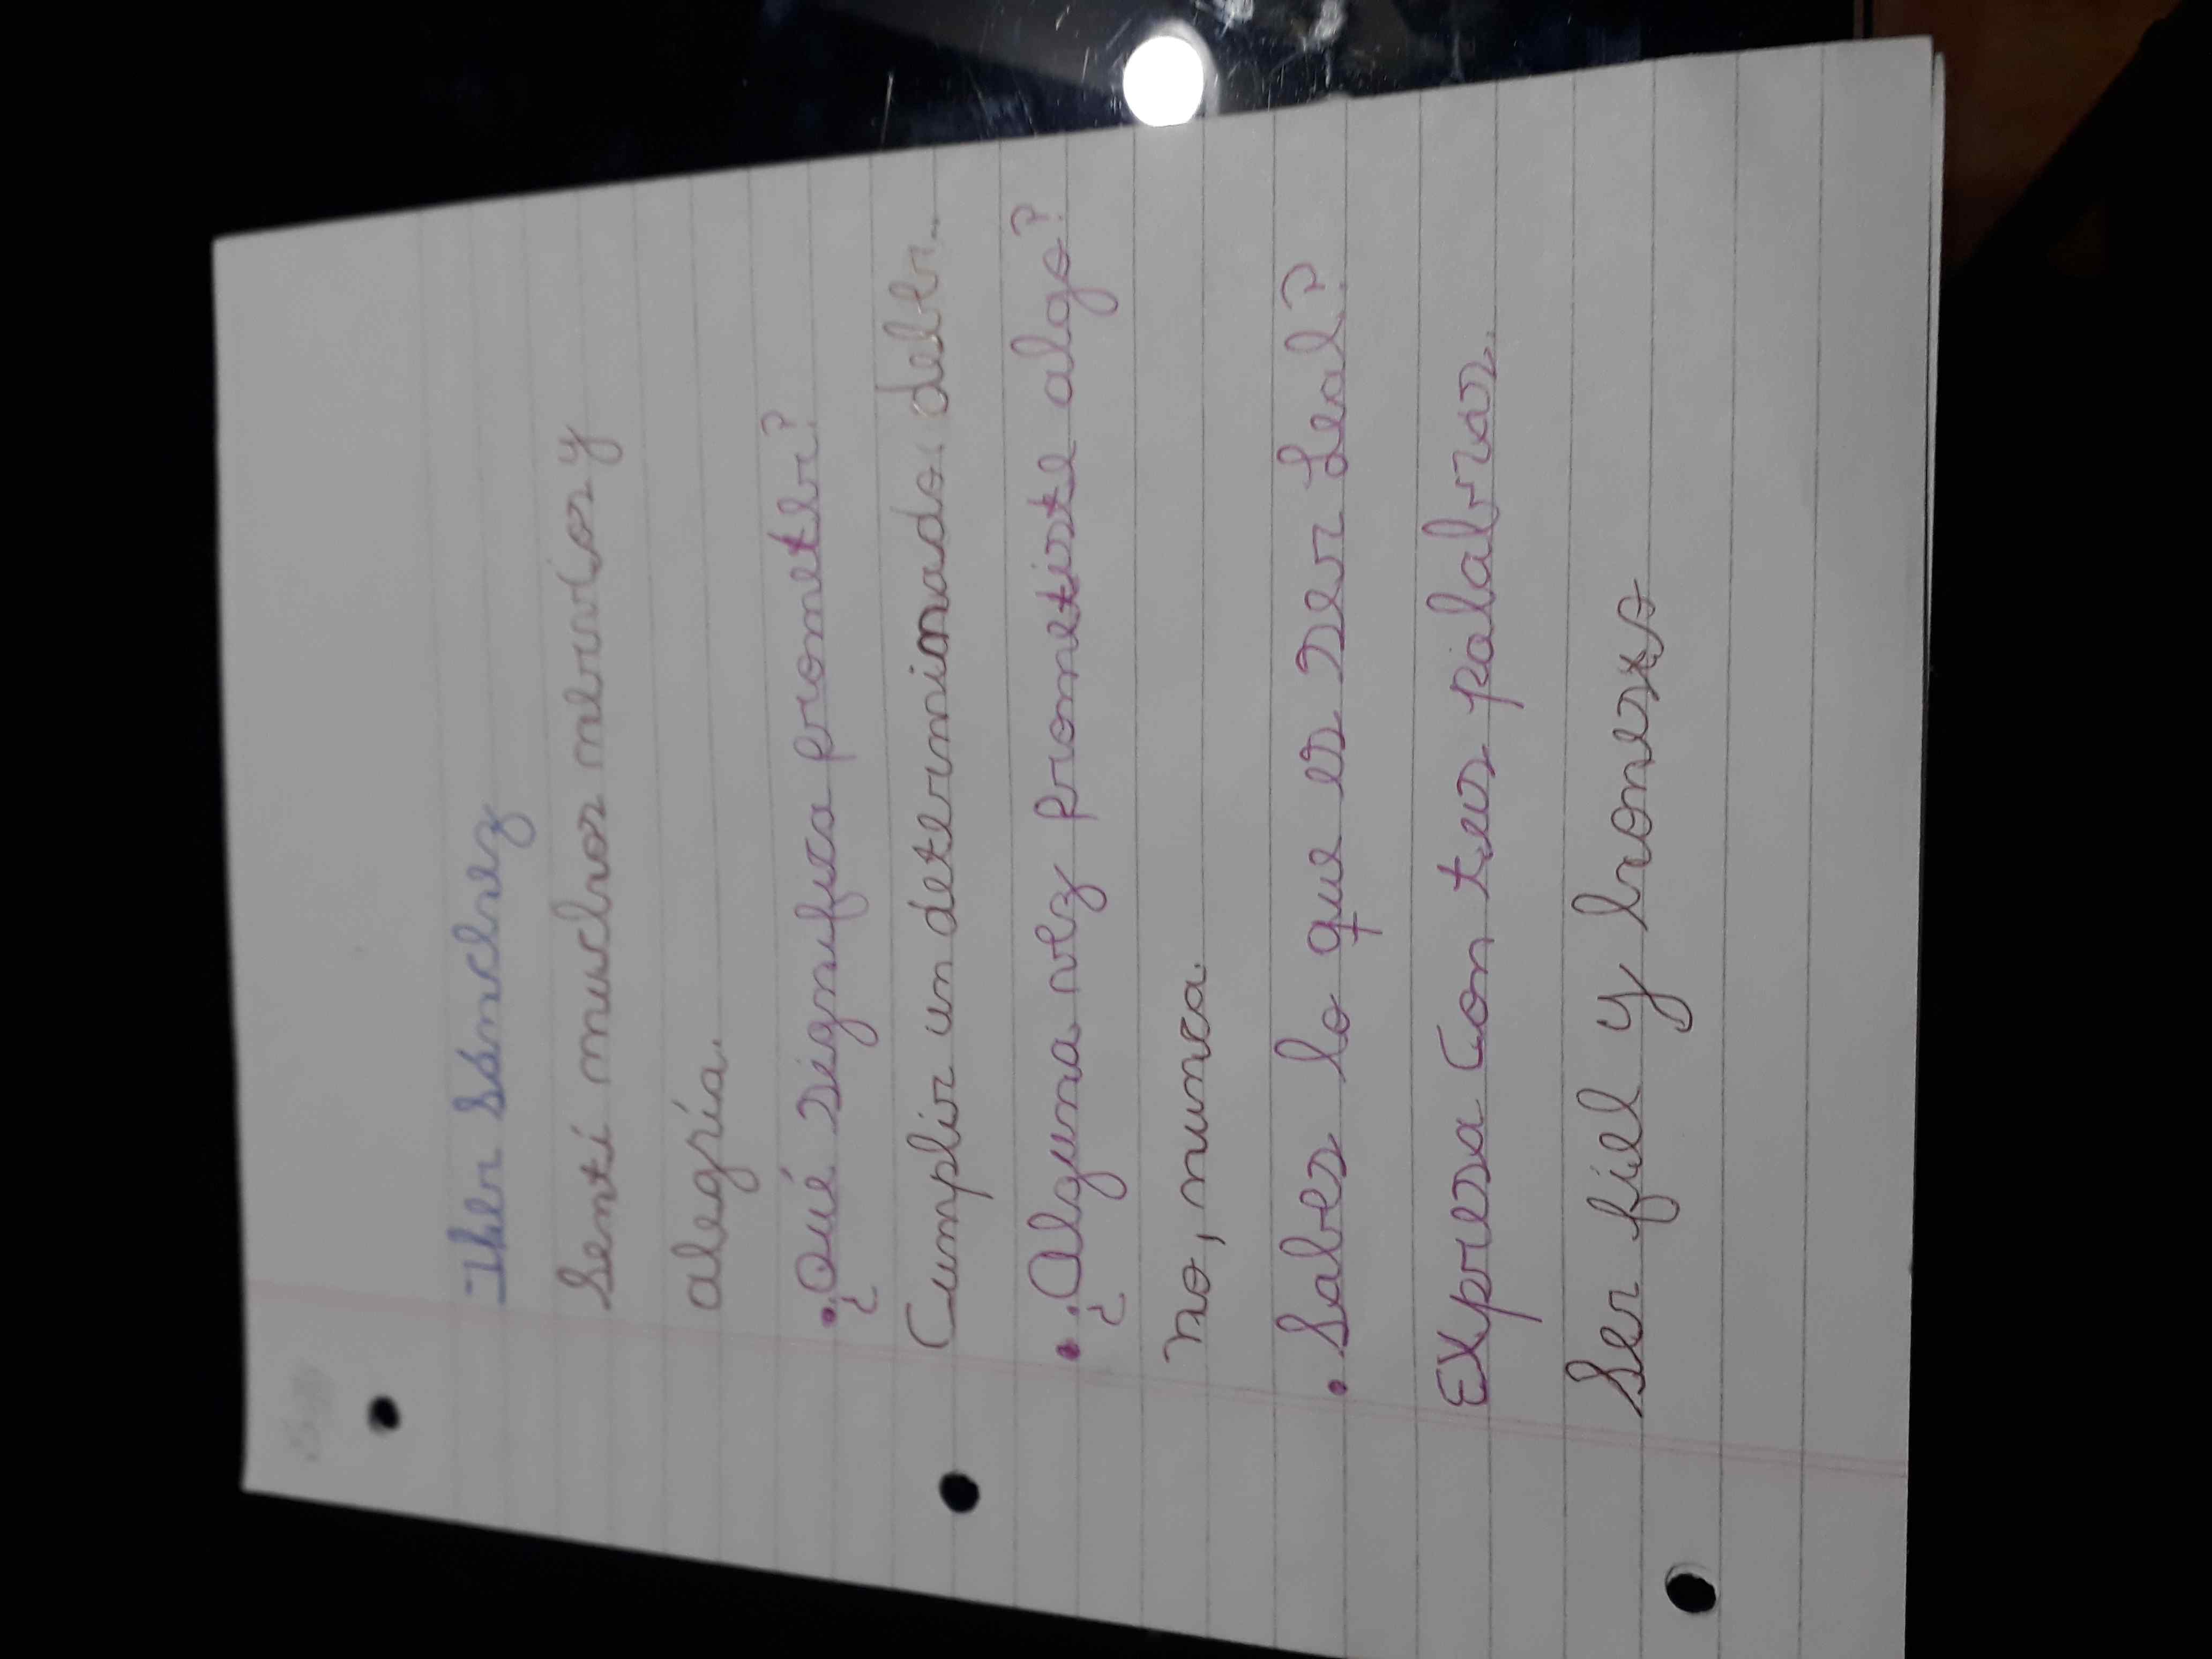 Iker Sánchez
Sentí muchos nervios y
alegría.
• ¿Qué significa prometer?
Cumplir un determinado deber.
• ¿Alguna vez prometiste algo?
no, nunca.
• Sabes lo que es ser Leal?
Expresa con tus palabras.
Ser fiel y honesto